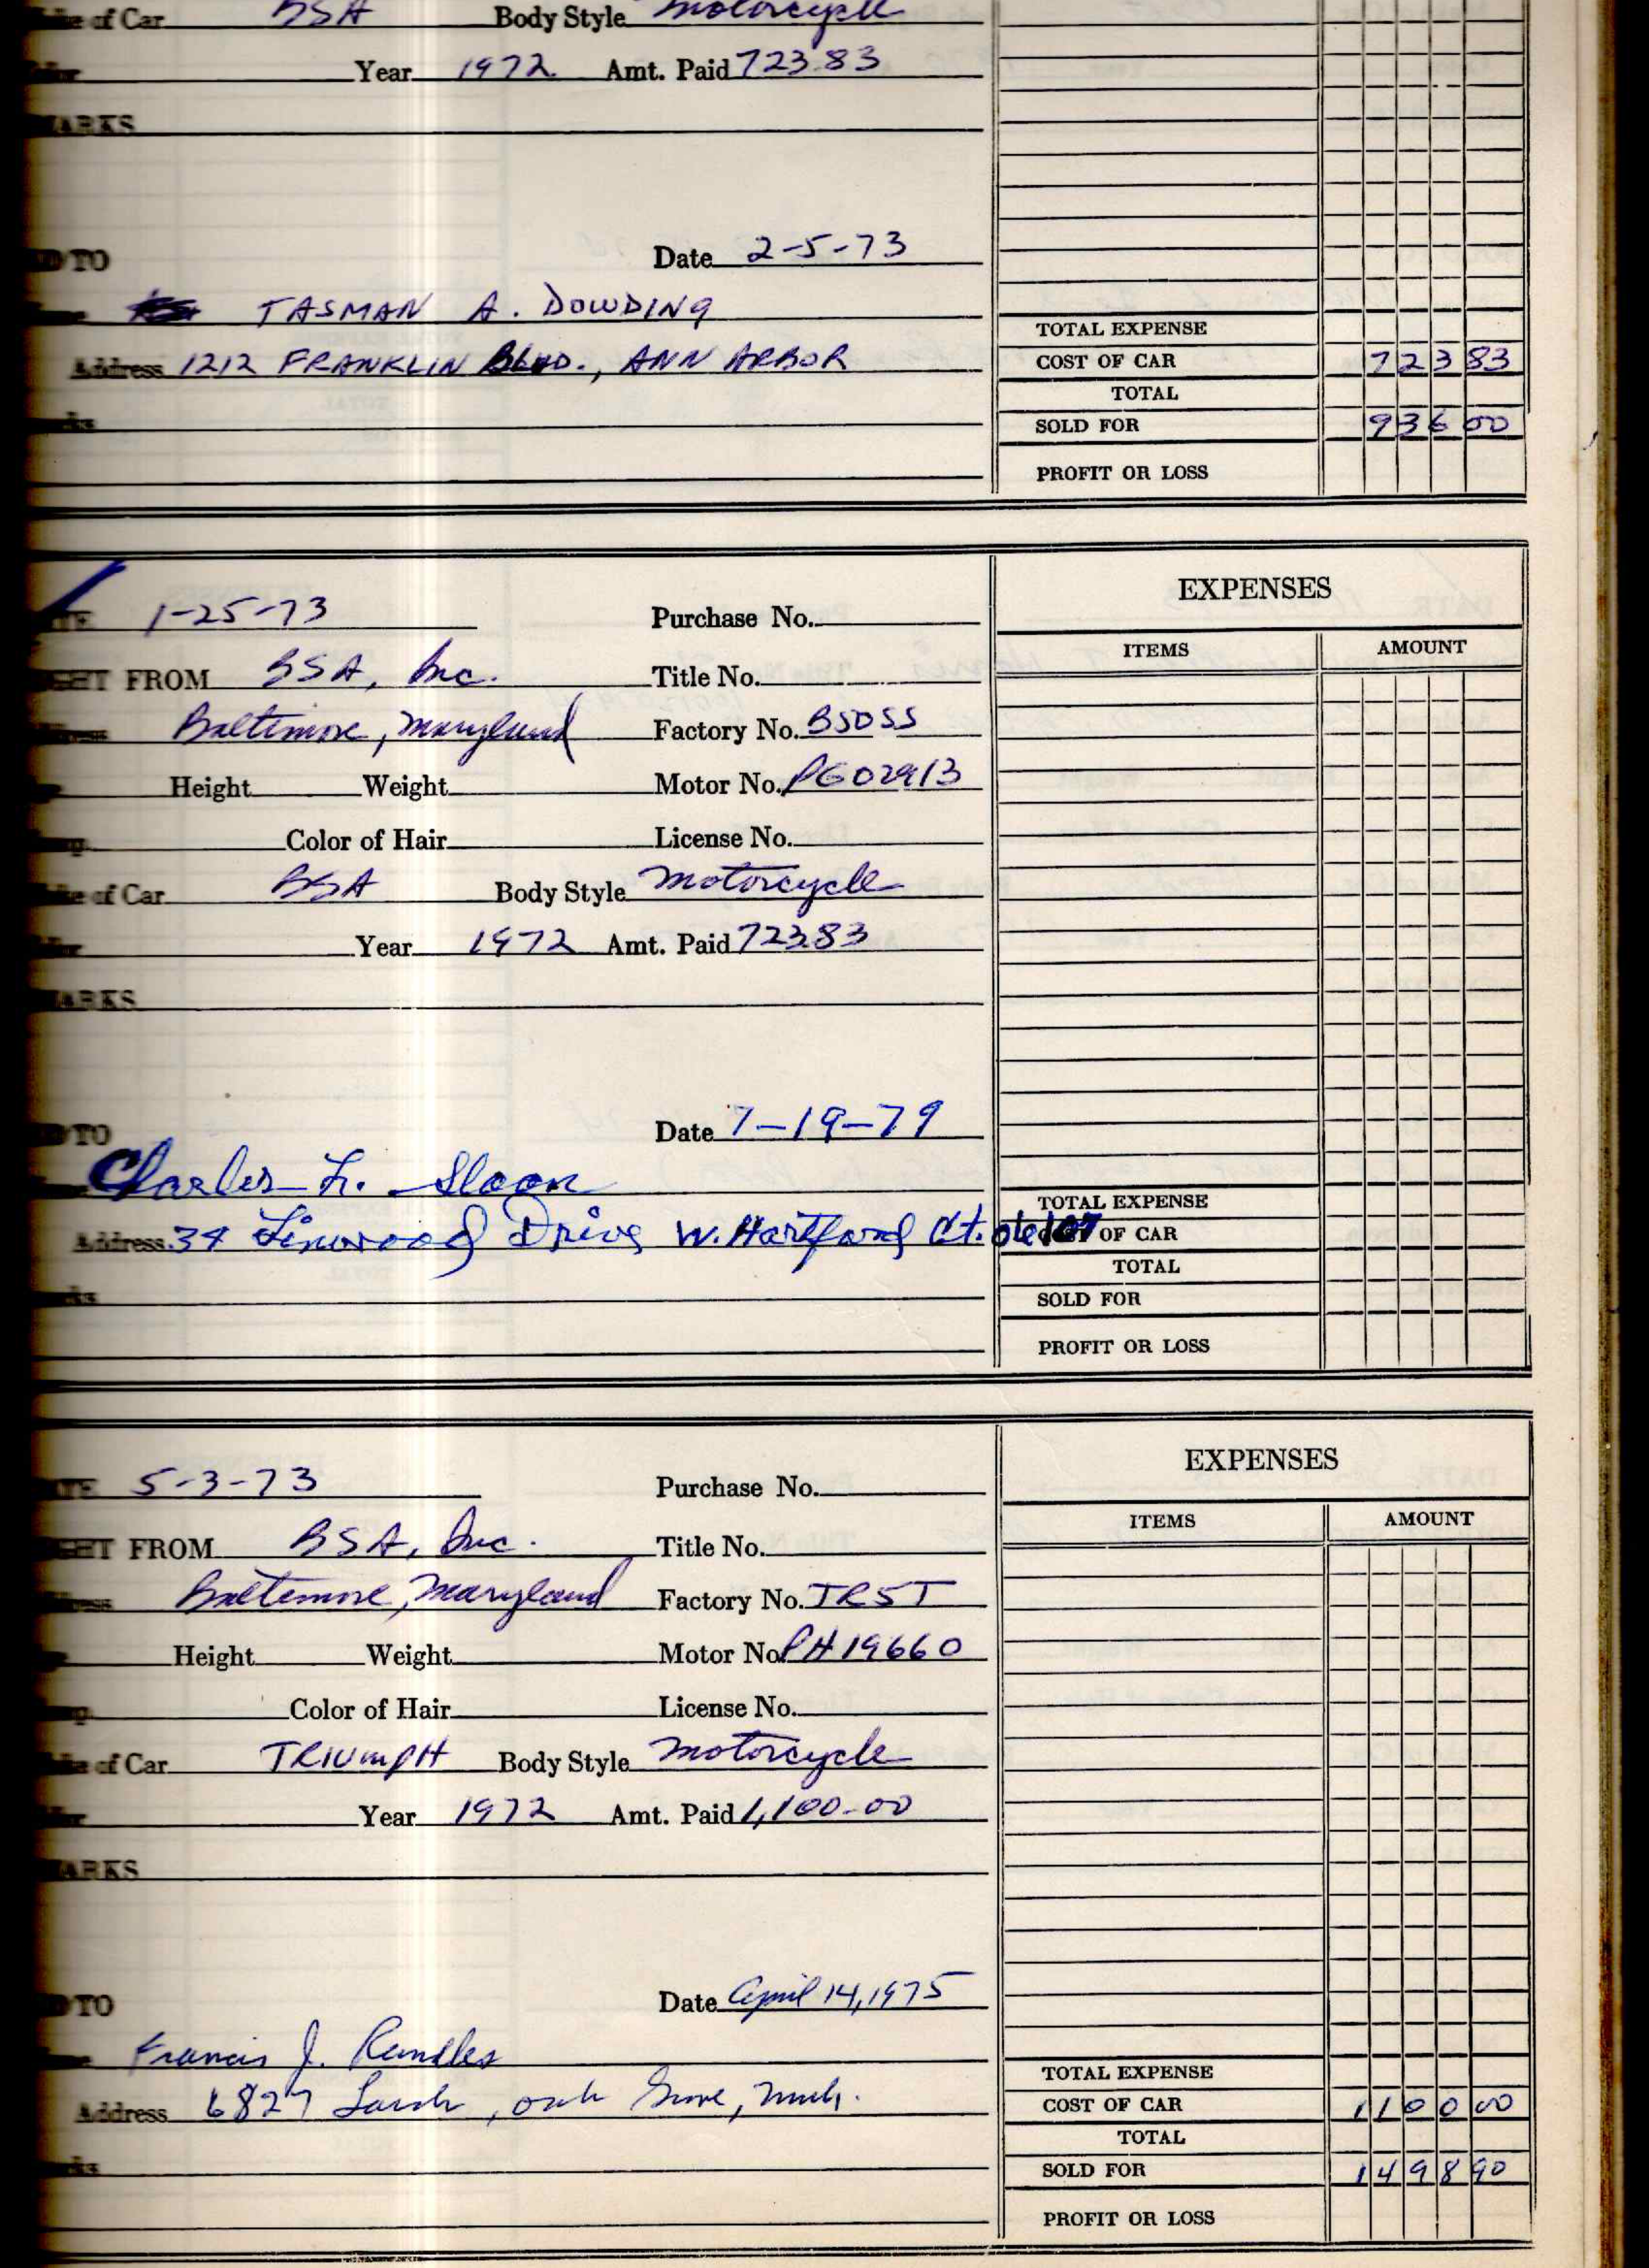 ke of Car BSA Body Style Motorcycle
Year 1972 Amt. Paid 723.83
MARKS
D TO Date 2-5-73
TASMAN A. DOWDING
Address 1212 FRANKLIN BLVD., ANN ARBOR
TOTAL EXPENSE
COST OF CAR 723 83
TOTAL
SOLD FOR 936 00
PROFIT OR LOSS
TE 1-25-73 Purchase No.
EXPENSES
ITEMS AMOUNT
GHT FROM BSA, Inc. Title No.
Baltimore, Maryland Factory No. B50SS
Height Weight Motor No. PG02913
Color of Hair License No.
ke of Car BSA Body Style Motorcycle
Year 1972 Amt. Paid 723.83
MARKS
D TO Date 7-19-79
Charles L. Sloan
Address 34 Linwood Drive W. Hartford Ct.
TOTAL EXPENSE
COST OF CAR
TOTAL
SOLD FOR
PROFIT OR LOSS
TE 5-3-73 Purchase No.
EXPENSES
ITEMS AMOUNT
GHT FROM BSA, Inc. Title No.
Baltimore, Maryland Factory No. TR5T
Height Weight Motor No. PH19660
Color of Hair License No.
ke of Car TRIUMPH Body Style Motorcycle
Year 1972 Amt. Paid 1,100.00
MARKS
D TO Date April 14, 1975
Francis J. Rundles
Address 6827 , Mich.
TOTAL EXPENSE
COST OF CAR 1100 00
TOTAL
SOLD FOR 1498 90
PROFIT OR LOSS